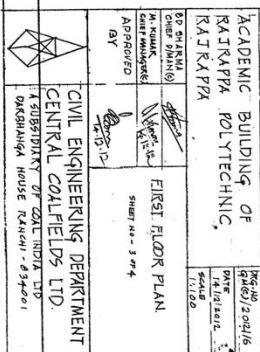 ACADEMIC BUILDING OF
RAJRAPPA POLYTECHNIC,
RAJRAPPA
DATE
14/12/2012
SCALE
1:100
BD SHARMA
CHIEF D/MAN(G)
M. KUMAR
CHIEF MANAGER(C)
APPROVED
BY
14.12.12
FIRST FLOOR PLAN
SHEET NO - 3 OF 4
CIVIL ENGINEERING DEPARTMENT
CENTRAL COALFIELDS LTD.
A SUBSIDIARY OF COAL INDIA LTD
DARBHANGA HOUSE RANCHI - 834001